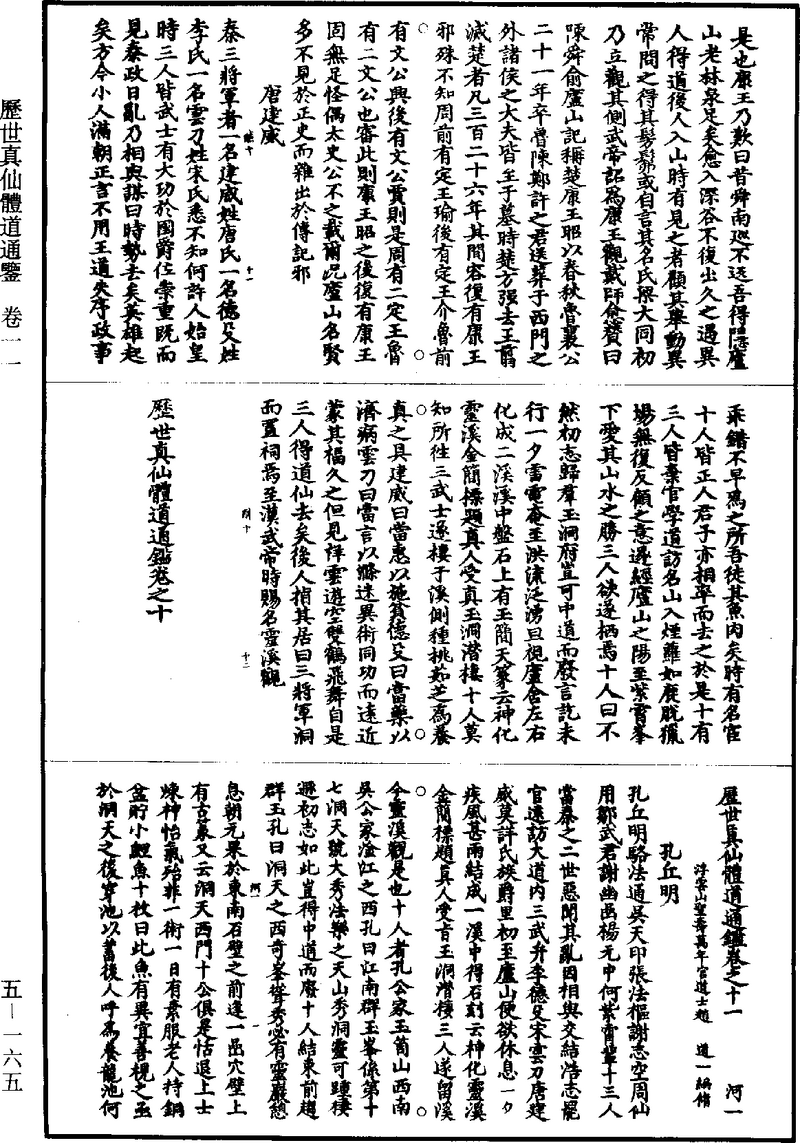 歷世真仙體道通鑒 卷一一
五—一六五
是也康王乃歎曰昔舜南巡不返吾得隱廬
山老林泉足矣愈入深谷不復出久之遇異
人得道後人入山時有見之者顧其舉動異
常問之得其髣髴或自言其名氏與大同初
乃立觀其側武帝詔為康王觀戴師愈贊曰
陳舜俞廬山記稱楚康王昭以春秋魯襄公
二十一年卒魯陳鄭許之君送葬于西門之
外諸侯之大夫皆至于墓時楚方强去王翦
滅楚者凡三百二十六年其間容復有康王
邪殊不知周前有定王瑜後有定王介魯前
有文公興後有文公賈則是周有二定王魯
有二文公也審此則康王昭之後復有康王
固無足怪偶太史公不之載爾况廬山名賢
多不見於正史而雜出於傳記邪
唐建威
十一
秦三將軍者一名建威姓唐氏一名德殳姓
李氏一名雲刀姓宋氏悉不知何許人始皇
時三人皆武士有大功於國爵位崇重既而
見秦政日亂乃相與謀曰時勢去矣英雄起
矣方今小人滿朝正言不用王道失序政事
乖錯不早為之所吾徒其魚肉矣時有名宦
十人皆正人君子亦相率而去之於是十有
三人皆棄官學道訪名山入煙蘿如鹿脫獵
場無復反顧之意遂經廬山之陽至紫霄峯
下愛其山水之勝三人欲遂栖焉十人曰不
然初志歸羣玉洞府豈可中道而廢言訖未
行一夕雷電奄至洪流泛湧旦視廬舍左右
化成二溪溪中盤石上有玉簡天篆云神化
靈溪金簡標題真人受真玉洞潜棲十人莫
知所往三武士遂棲于溪側種桃茹芝為養
真之具建威曰當惠以施貧德殳曰當藥以
濟病雲刀曰當言以滌迷異術同功而遠近
蒙其福久之但見祥雲遊空雙鶴飛舞自是
三人得道仙去矣後人指其居曰三將軍洞
而置祠焉至漢武帝時賜名靈溪觀
十二
歷世真仙體道通鑑卷之十
歷世真仙體道通鑑卷之十一 河一
浮雲山聖壽萬年宮道士趙道一編修
孔丘明
孔丘明駱法通吳天印張法樞謝志空周仙
用鄒武君謝幽巖楊元中何紫霄等十三人
當秦之二世惡聞其亂因相與交結浩志罷
官遠訪大道内三武弁李德殳宋雲刀唐建
威莫詳氏族爵里初至廬山便欲休息一夕
疾風甚雨結成一溪中得石刻云神化靈溪
金簡標題真人受旨玉洞潜棲三人遂留溪
今靈溪觀是也十人者孔公家玉笥山西南
吳公家淦江之西孔曰江南群玉峯係第十
七洞天號大秀法樂之天山秀洞靈可踵棲
遯初志如此豈得中道而廢十人結束前趨
群玉孔曰洞天之西奇峯聳秀必有靈巖憩
河一
息朝元果於東南石壁之前逢一嵒穴壁上
有古篆又云洞天西門十公俱是恬退上士
煉神怡氣殆非一術一日有素服老人持銅
盆貯小鯉魚十枚曰此魚有異宜善視之至
於洞天之後穿池以蓄後人呼為養龍池何